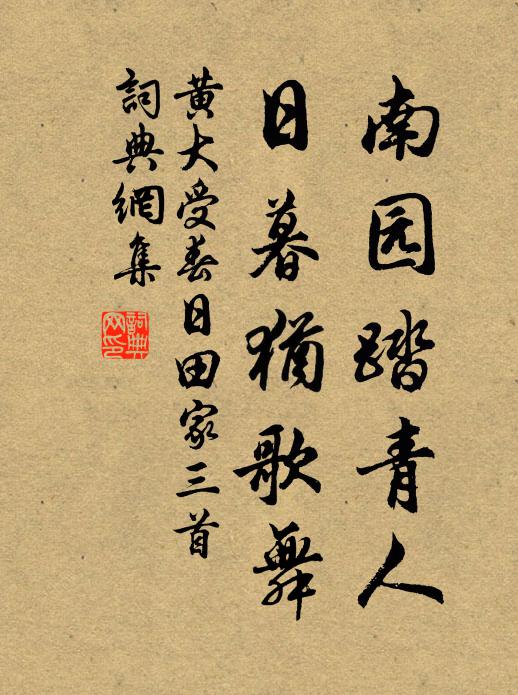 南园踏青人
日暮猶歌舞
黄大受春日田家三首
詞典網集
詞典网印